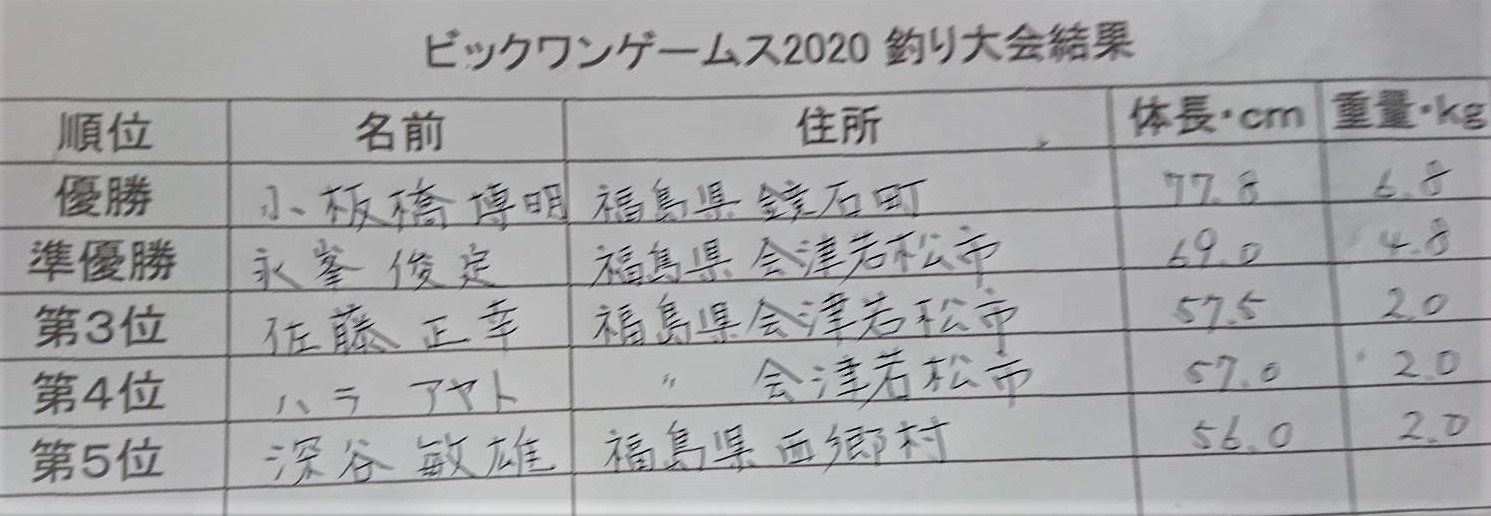 ビックワンゲームス2020 釣り大会結果
順位 名前 住所 体長・cm 重量・kg
優勝 小板橋 博明 福島県 鏡石町 77.8 6.8
準優勝 永峯 俊定 福島県 会津若松市 69.0 4.8
第3位 佐藤 正幸 福島県会津若松市 57.5 2.0
第4位 ハラ アヤト 〃 会津若松市 57.0 2.0
第5位 深谷 敏雄 福島県 西郷村 56.0 2.0